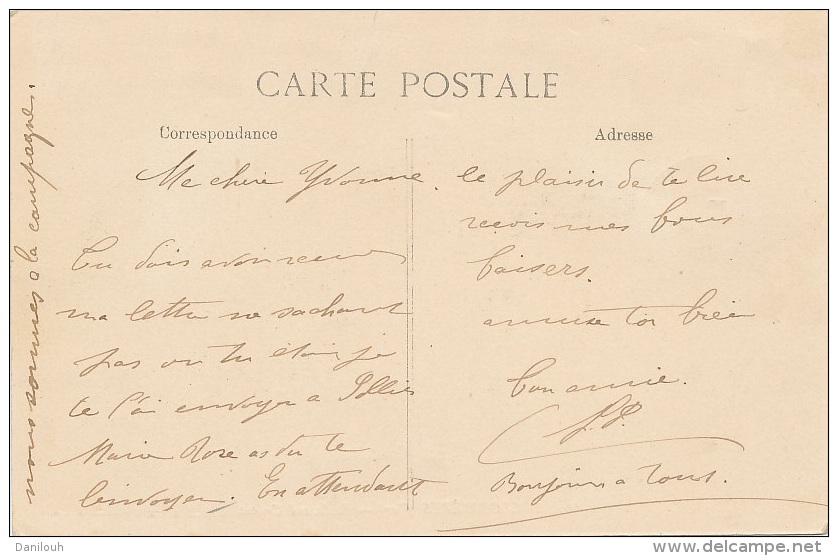 CARTE POSTALE
Correspondance
Adresse
Ma chère Yvonne
Tu dois avoir recu
ma lettre ne sachant
pas ou tu étais je
te l'ai envoyer a Illies
Marie Rose as du te
l'envoyer. En attendant
le plaisir de te lire
reçois mes bons
baisers.
amuse toi bien
Ton amie.
Bonjour a tous.
nous sommes a la campagne.
Danilouh
www.delcampe.net